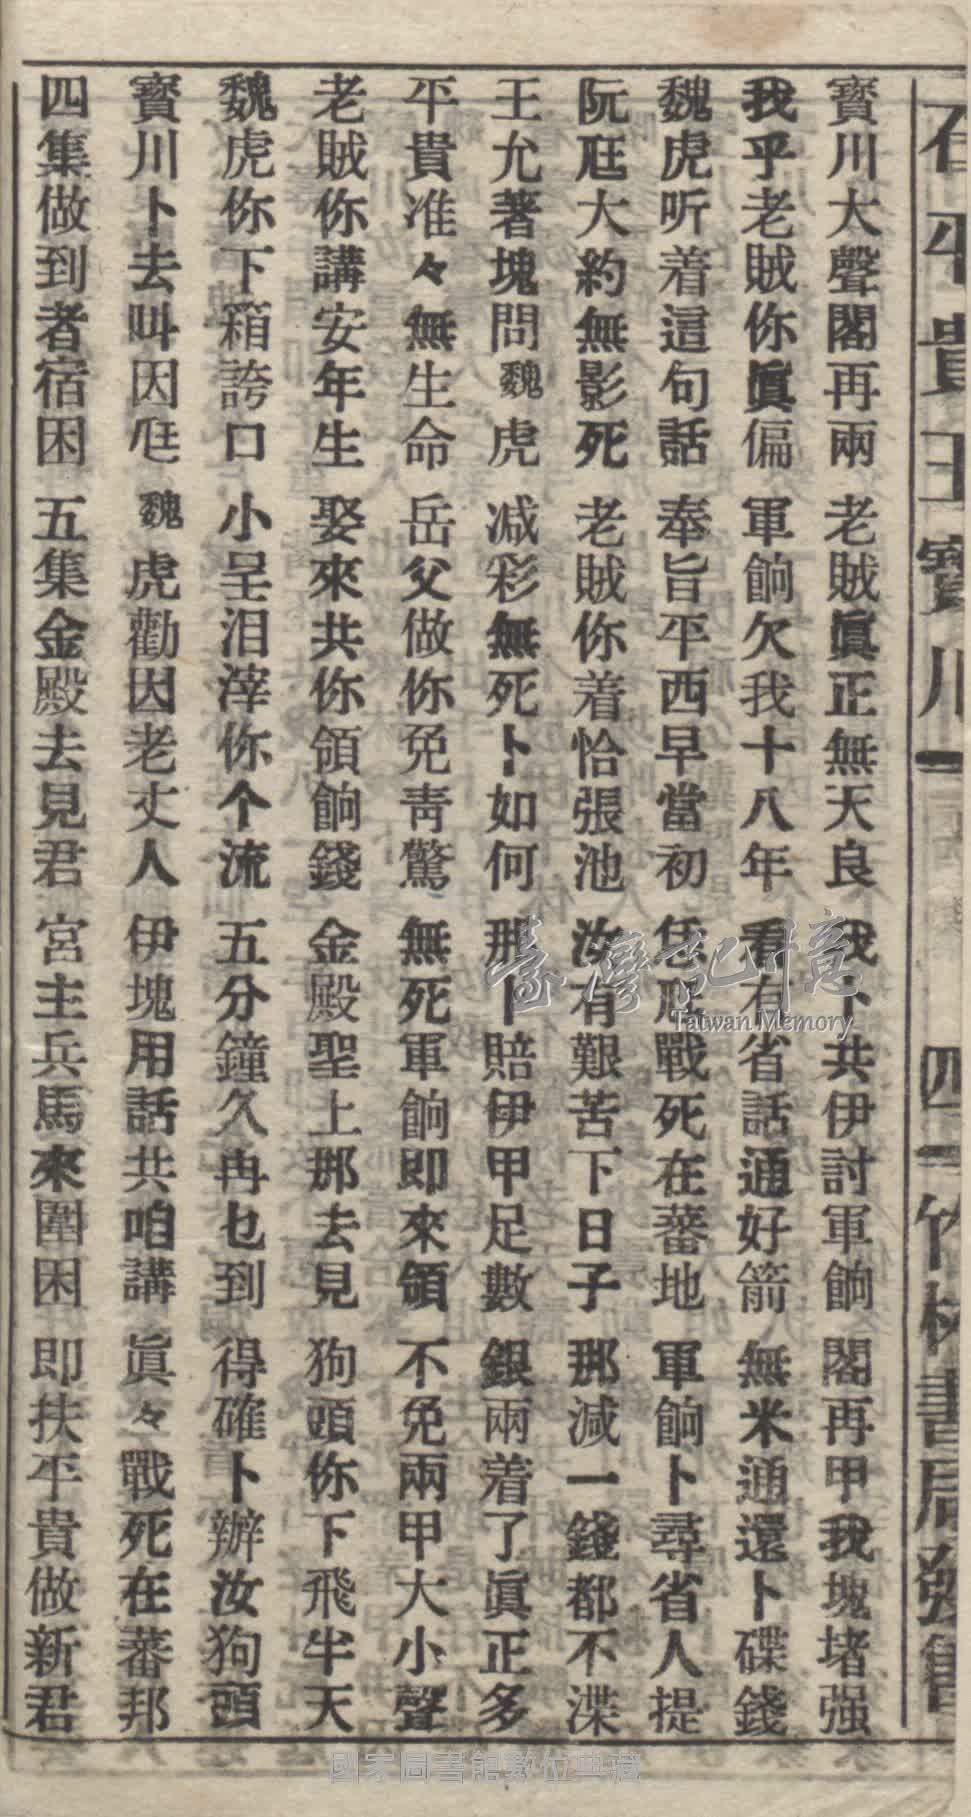 平貴王寶川 四 竹林書局發售
寶川大聲閣再兩 老賊眞正無天良 我卜共伊討軍餉 閣再甲我塊堵强
我乎老賊你眞偏 軍餉欠我十八年 看有省話通好箭 無米通還卜碟錢
魏虎听着這句話 奉旨平西早當初 恁尪戰死在蕃地 軍餉卜尋省人提
阮尫大約無影死 老賊你着恰張池 汝有艱苦下日子 那减一錢都不渫
王允著塊問魏虎 减彩無死卜如何 那卜賠伊甲足數 銀兩着了眞正多
平貴准々無生命 岳父做你免靑驚 無死軍餉即來領 不免兩甲大小聲
老賊你講安年生 娶來共你領餉錢 金殿聖上那去見 狗頭你下飛半天
魏虎你下箱誇口 小呈泪滓你个流 五分鐘久冉乜到 得確卜辦汝狗頭
寶川卜去叫因尫 魏虎勸因老丈人 伊塊用話共咱講 眞々戰死在蕃邦
四集做到者宿困 五集金殿去見君 宮主兵馬來圍困 即扶平貴做新君
臺灣記憶
Taiwan Memory
國家圖書館數位典藏